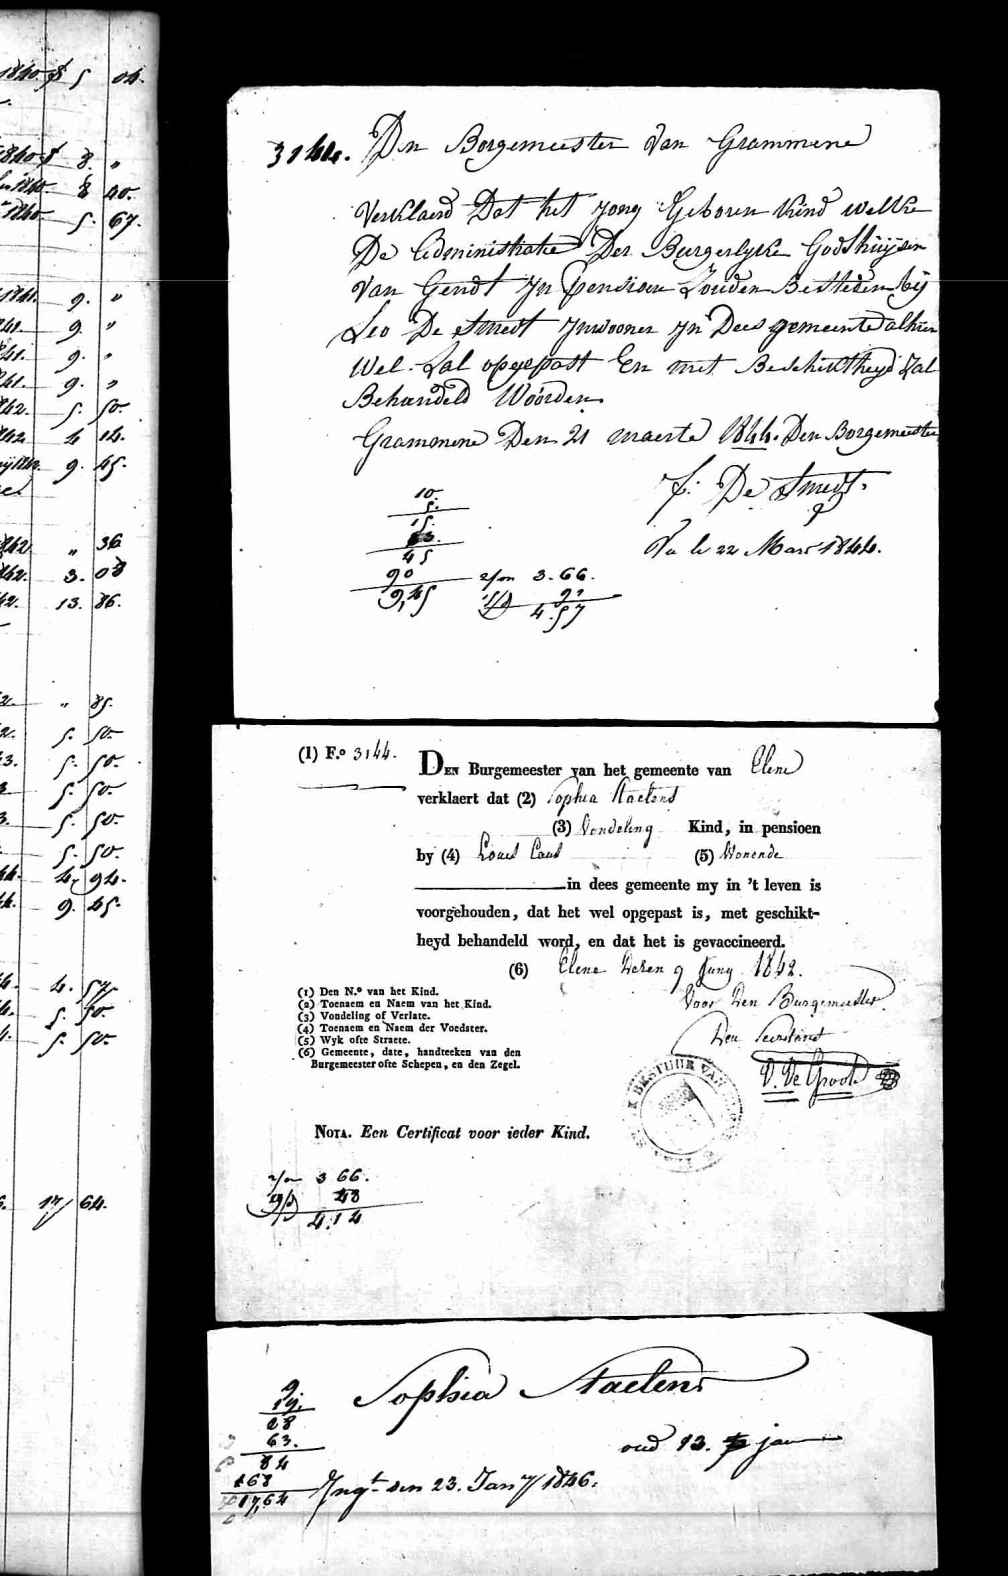 1840. f 5 04.
1840 f 8. "
1840. 8 40.
1840 5. 67.
1841. 9. "
41. 9. "
41. 9. "
41. 9. "
842. 5. 50.
842 4 14.
9. 45.
842 " 36
842. 3. 08
42. 13. 86.
2. " 85.
2. 5. 50.
3. 5. 50.
5. 50.
3. 5. 50.
5. 50.
44. 4. 94.
44. 9. 45.
4. 4. 57.
4. 5. 50.
4. 5. 50.
6. 17 64.
3144. Den Borgemeester Van Grammene
Verklaerd Dat het jong Geboren Kind welke
De Administratie Der Burgerlyke Godshuijsen
Van Gendt Jn Pensioen Zouden Besteden bij
Leo De Smedt Jnwooner Jn Dees gemeente alhier
Wel Zal opgepast En met Beschiktheyd Zal
Behandeld Woorden
Grammene Den 21 maerte 1844. Den Borgemeester
f. De Smedt
Vu le 22 Mars 1844.
10.
5.
15.
63.
45
90
9,45
3.66.
91
4.57
(1) F.º 3144.
DEN Burgemeester van het gemeente van Elene
verklaert dat (2) Sophia Staelens
(3) Vondeling Kind, in pensioen
by (4) Louis Caus (5) Wonende
in dees gemeente my in 't leven is
voorgehouden, dat het wel opgepast is, met geschikt-
heyd behandeld word, en dat het is gevaccineerd.
(6) Elene Dezen 9 Juny 1842.
Voor Den Burgemeester
Den Secretaris
D. De Groote
(1) Den N.º van het Kind.
(2) Toenaem en Naem van het Kind.
(3) Vondeling of Verlate.
(4) Toenaem en Naem der Voedster.
(5) Wyk ofte Straete.
(6) Gemeente, date, handteeken van den
Burgemeester ofte Schepen, en den Zegel.
BESTUUR VAN
NOTA. Een Certificat voor ieder Kind.
3 66.
48
4.14
Sophia Staelens
oud 13. jaer
9
19.
28
63.
84
168
17,64
Jngt den 23. Jany 1846.